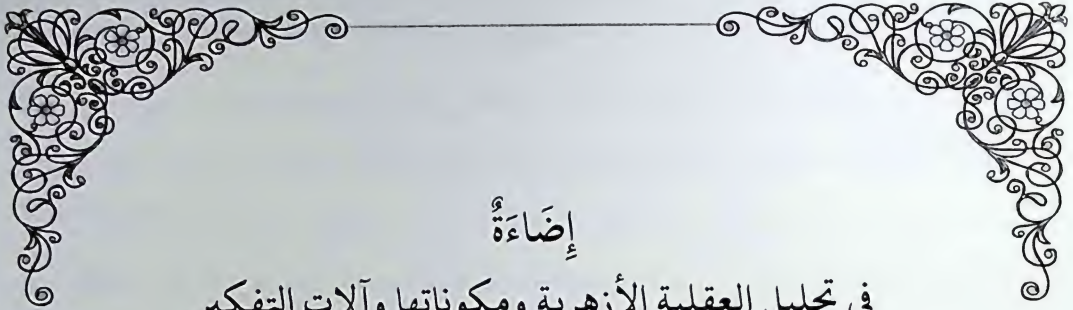 إِضَاءَةٌ
في تحليل العقلية الأزهرية ومكوناتها وآلات التفكير